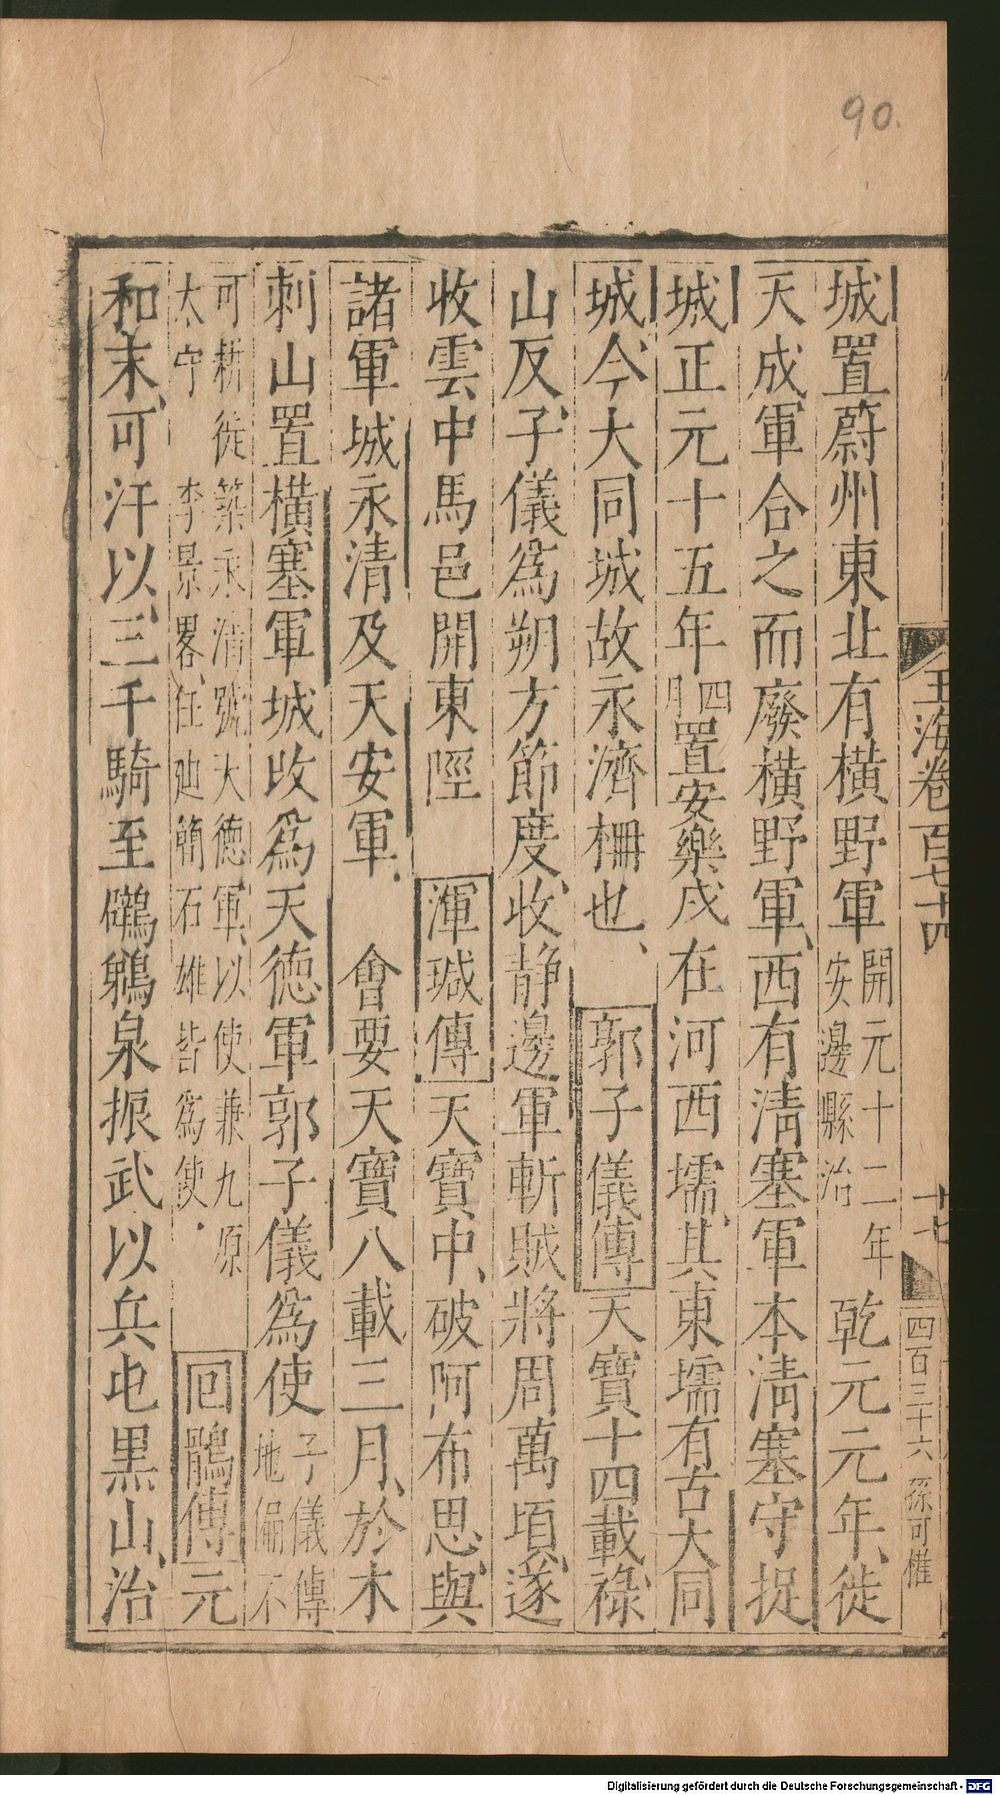 90.
城置蔚州東北有横野軍開元十二年安邊縣治乾元元年、徙
天成軍合之而廢横野軍、西有清塞軍本清塞守捉
城正元十五年四月置安樂戍在河西壖、其東壖有古大同
城、今大同城故永濟柵也、郭子儀傳天寶十四載、祿
山反、子儀爲朔方節度、收静邊軍斬賊將周萬頃、遂
收雲中馬邑開東陘 渾瑊傳天寶中、破阿布思、與
諸軍城永清及天安軍. 會要天寶八載三月、於木
刺山置横塞軍城收爲天德軍郭子儀爲使子儀傳地偏不
可耕徙築永清號大德軍、以使兼九原太守 李景畧、任迪簡石雄皆爲使. 回鶻傳元
和末、可汗以三千騎至鸊鵜泉振武以兵屯黒山、治
玉海卷百七十四
十七
四百三十六
孫可權
Digitalisierung gefördert durch die Deutsche Forschungsgemeinschaft - DFG